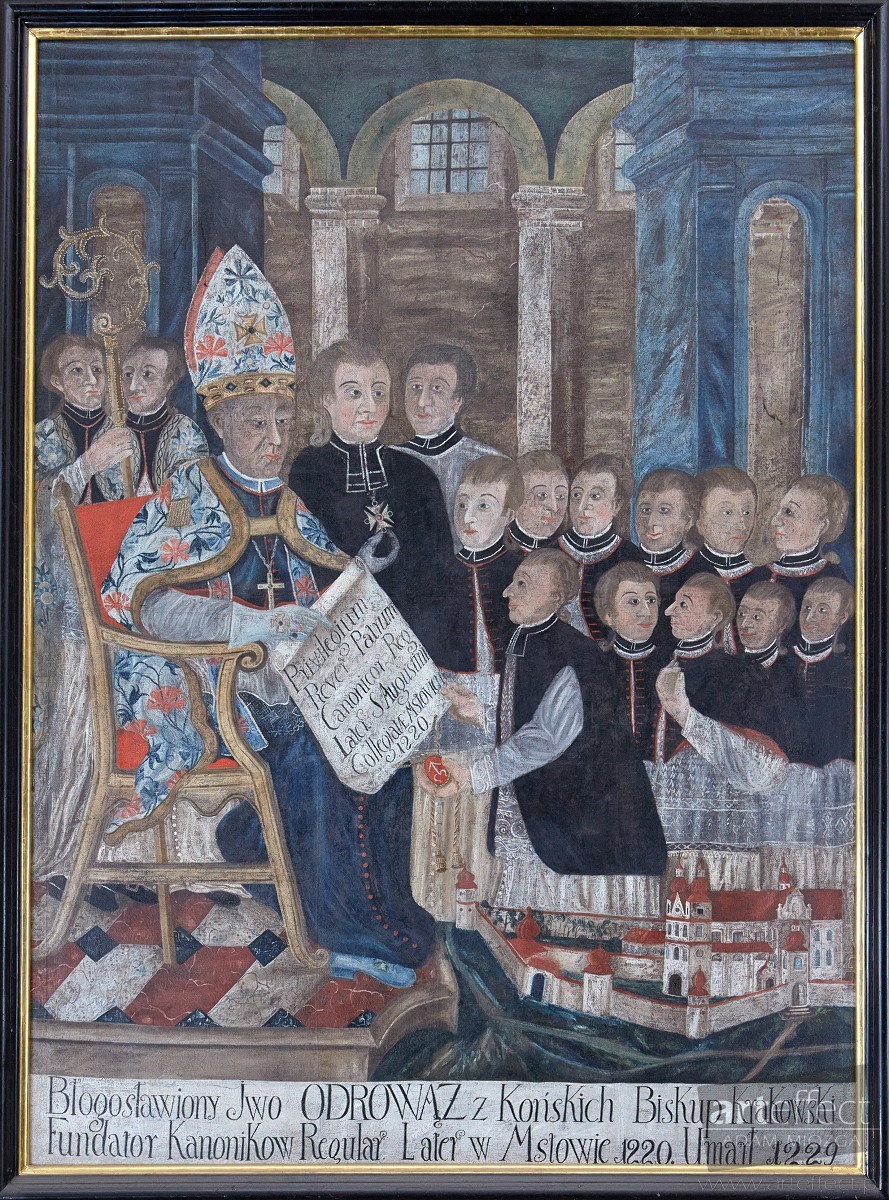 Privilegium
Rever Patrum
Canonicor Reg
Later S Augustini
Collegiatæ Mstovien
1220
Błogosławiony Jwo ODROWĄZ z Końskich Biskup krakowski
Fundator Kanonikow Regular Later w Mstowie 1220. Umarł 1229
arteffect
ADAM MIOZGA